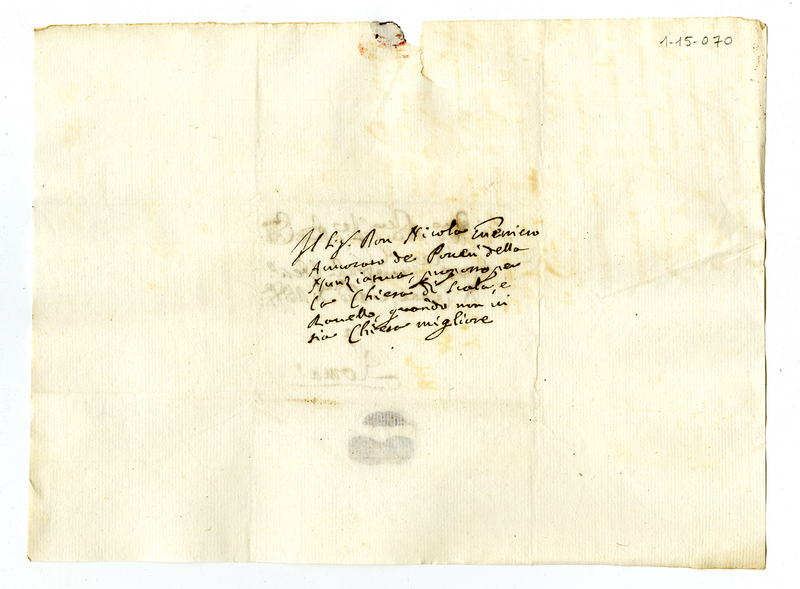 1-15-070
Il Sig.r Don Nicola Guerriero
Avvocato de Poveri della
Nunziatura proposto per
la Chiesa di Scala, e
Ravello, quando non vi
sia Chiesa migliore
Roma